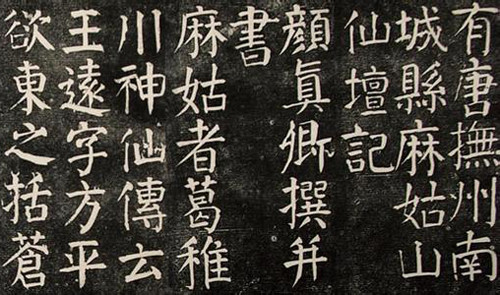 有唐撫州南
城縣麻姑山
仙壇記
顏真卿撰并
書
麻姑者葛稚
川神仙傳云
王遠字方平
欲東之括蒼